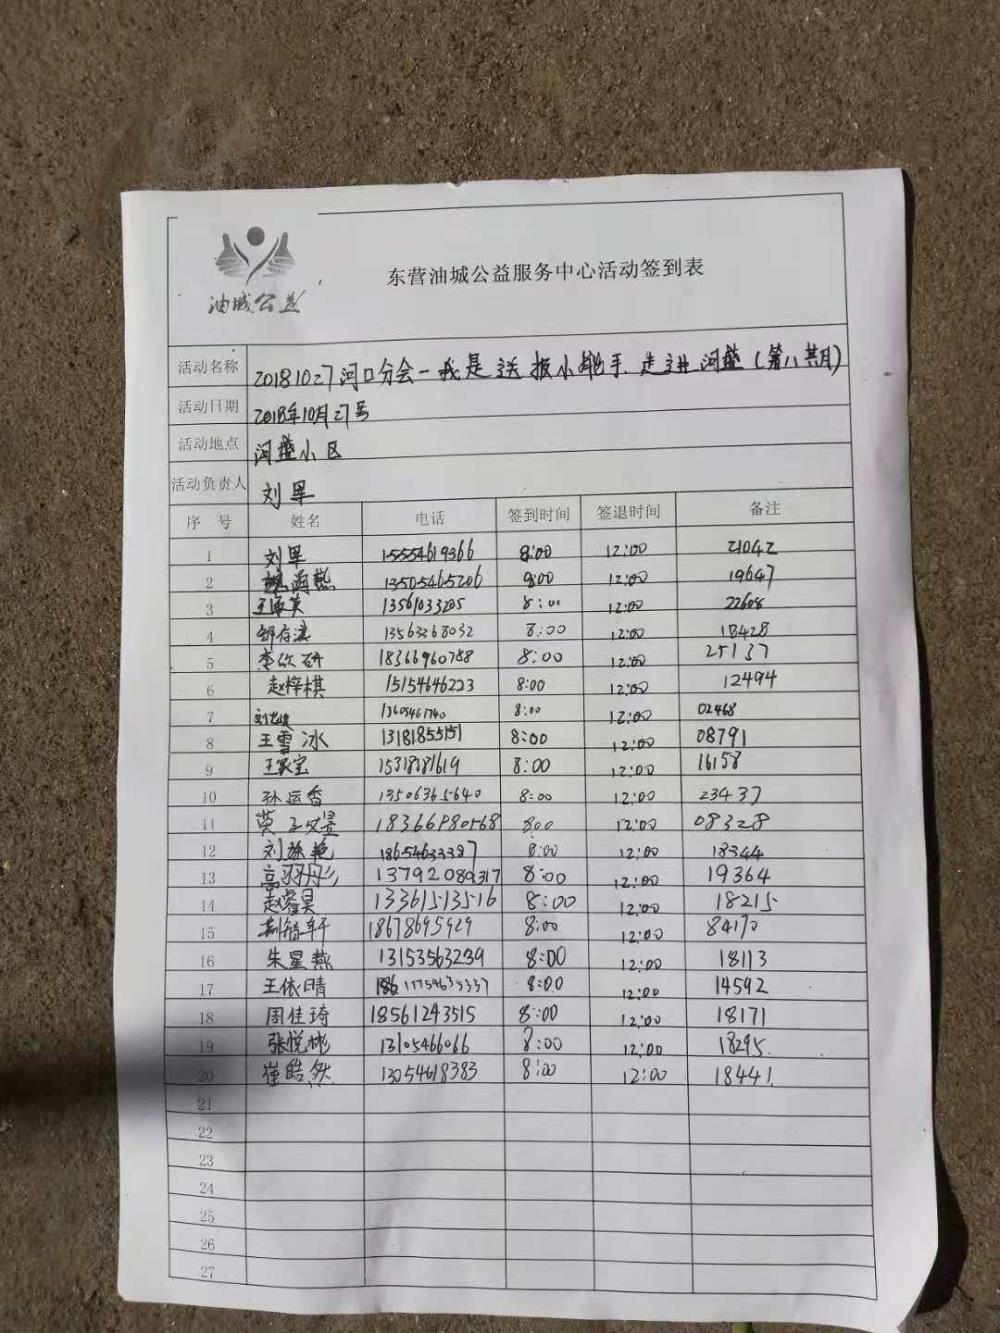 油城公益
东营油城公益服务中心活动签到表
活动名称 20181027河口分会-我是送报小能手.走进河盛(第八期)
活动日期 2018年10月27号
活动地点 河盛小区
活动负责人 刘军
序号 姓名 电话 签到时间 签退时间 备注
1 刘军 15554619366 8:00 12:00 21042
2 13505465206 8:00 12:00 19647
3 王海英 13561033205 8:00 12:00 22608
4 邹存淇 13563368032 8:00 12:00 18428
5 李欣研 18366960788 8:00 12:00 25137
6 赵梓棋 15154646223 8:00 12:00 12494
7 13605461740 8:00 12:00 02468
8 王雪冰 13181855151 8:00 12:00 08791
9 王家宝 15318181619 8:00 12:00 16158
10 孙运香 13506365640 8:00 12:00 23437
11 8:00 12:00 08328
12 刘 18654633387 8:00 12:00 18344
13 高羽彤 13792089317 8:00 12:00 19364
14 赵睿昊 13361513516 8:00 12:00 18215
15 18678695929 8:00 12:00 84170
16 朱星燕 13153563239 8:00 12:00 18113
17 王依晴 8:00 12:00 14592
18 周佳琦 18561243515 8:00 12:00 18171
19 张悦彬 13105466066 8:00 12:00 18295
20 崔皓然 13054618383 8:00 12:00 18441
21
22
23
24
25
26
27